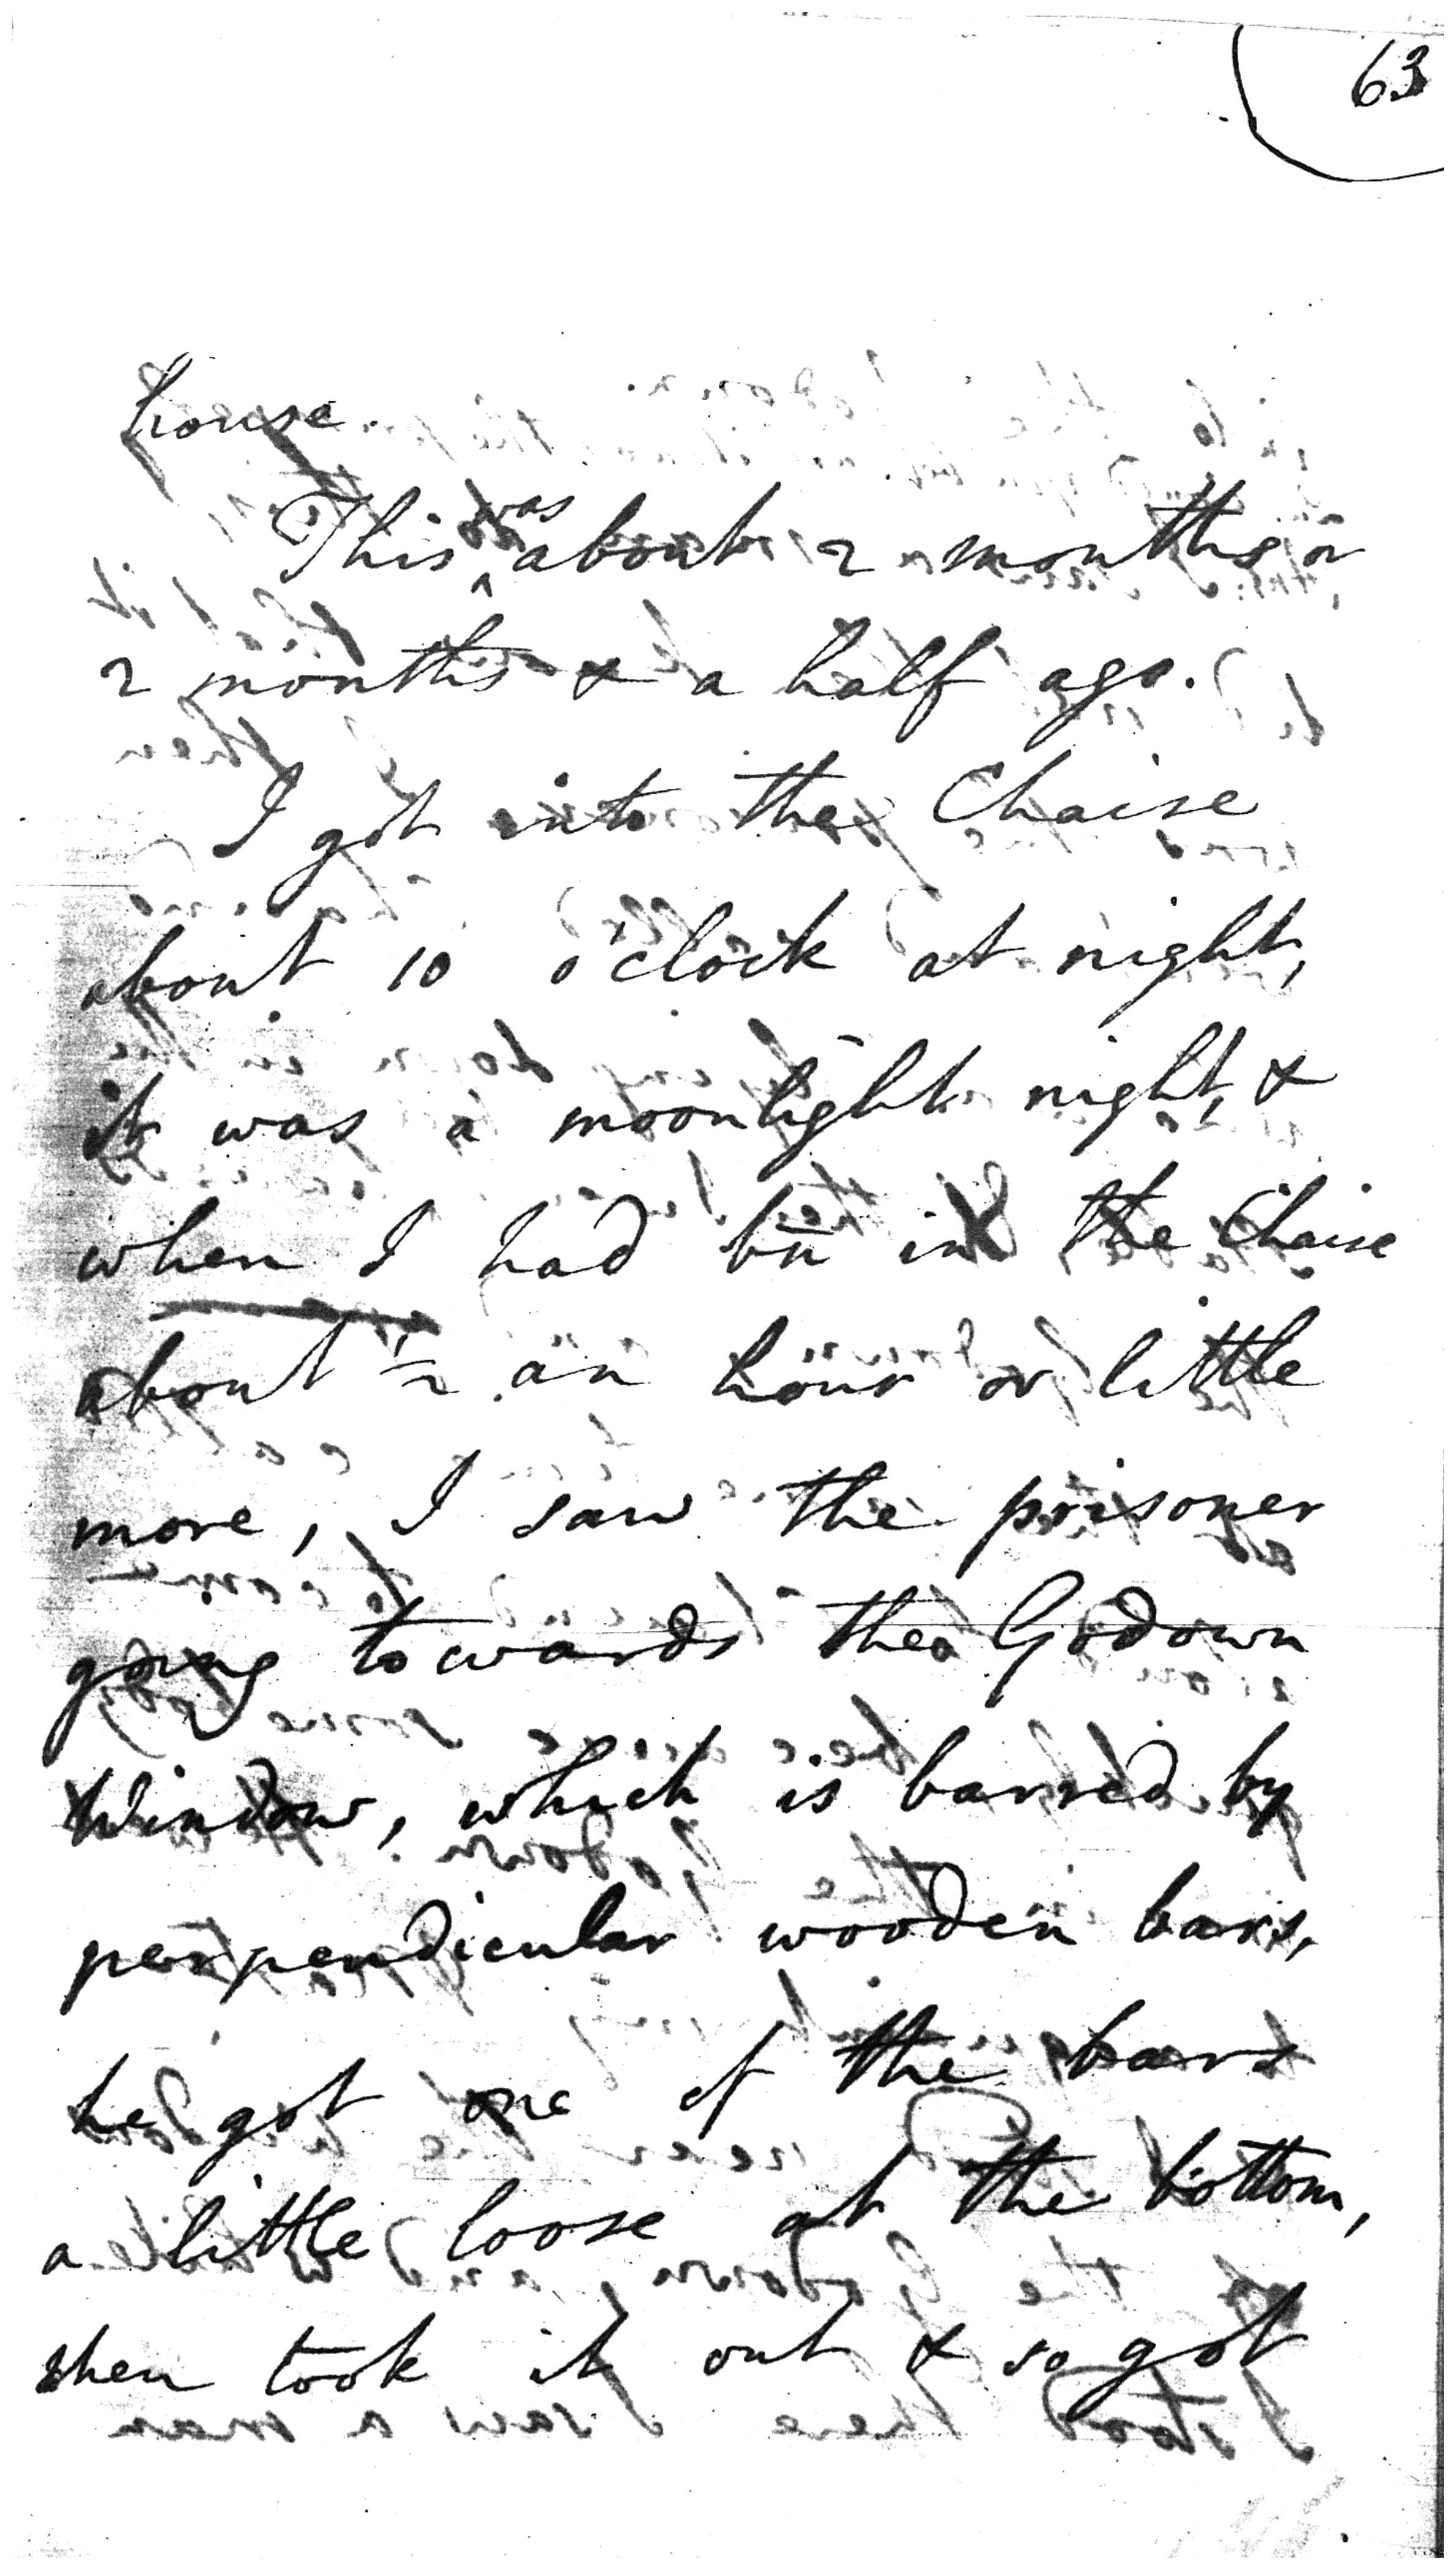 63
house.
This ^was about 2 months or
2 months & a half ago.
I got into the Chaise
about 10 o'clock at night,
it was a moonlight night, &
when I had bn in the Chaise
about ½ an hour or little
more, I saw the prisoner
going towards the Godown
Window, which is barred by
perpendicular wooden bars,
he got one of the bars
a little loose at the bottom,
then took it out & so got